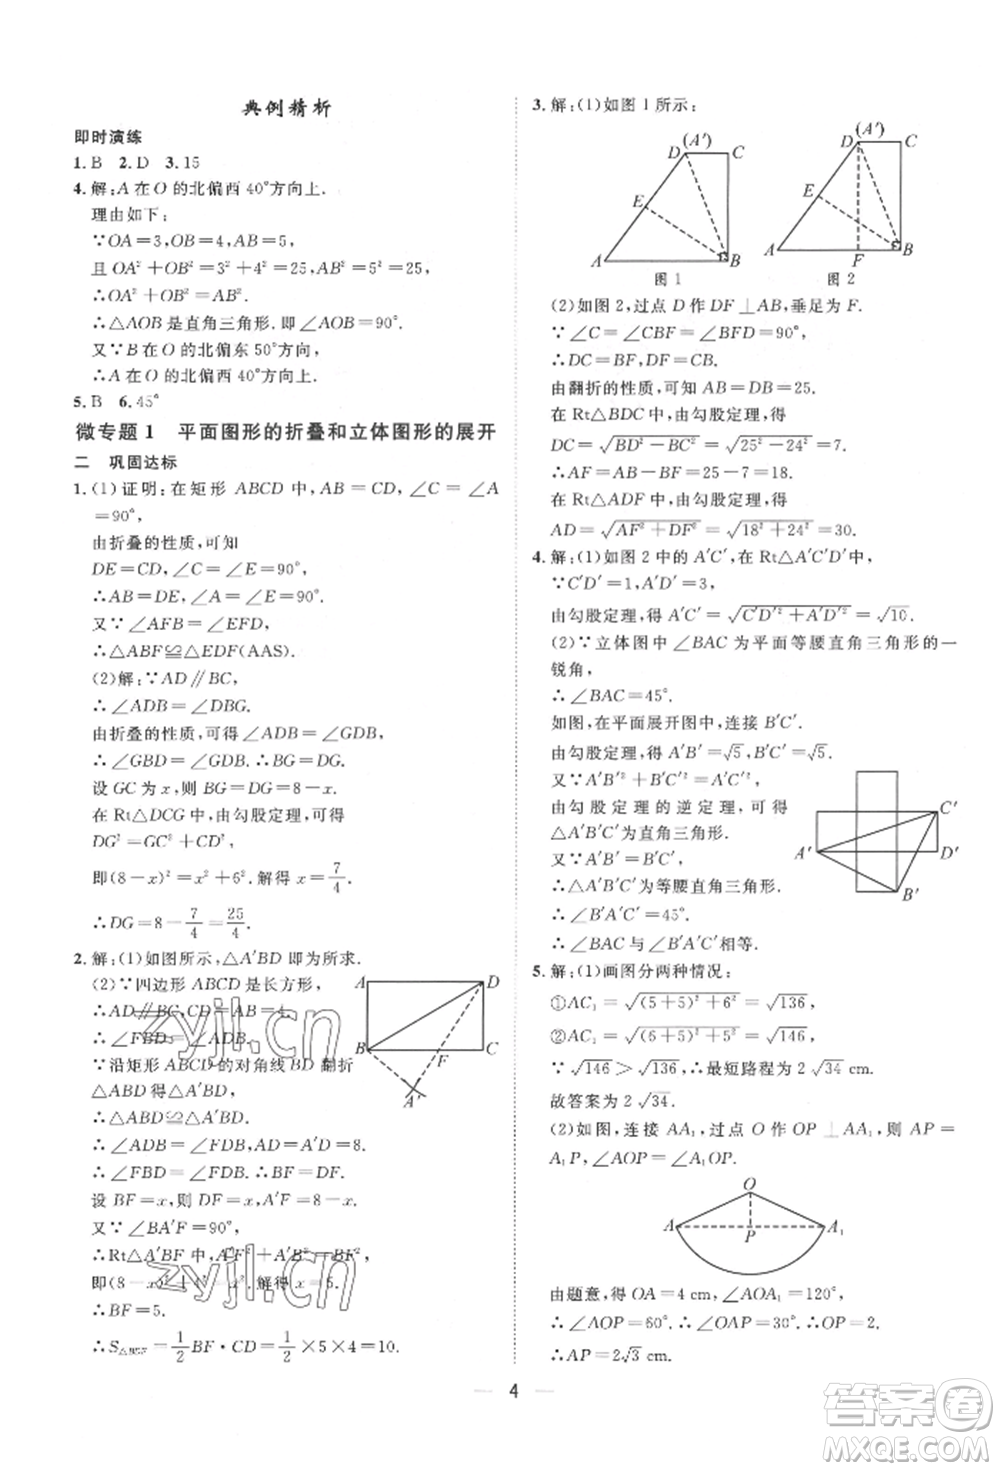 典例精析
即时演练
1.B 2.D 3.15
4.解:A在O的北偏西40°方向上.
理由如下:
∵OA=3,OB=4,AB=5,
且OA²+OB²=9+16=25,AB²=25,
∴OA²+OB²=AB².
∴△AOB是直角三角形.即∠AOB=90°.
又∵B在O的北偏东50°方向,
∴A在O的北偏西40°方向上.
5.B 6.45°
微专题1 平面图形的折叠和立体图形的展开
二 巩固达标
1.(1)证明:在矩形ABCD中,AB=CD,∠C=∠A
=90°,
由折叠的性质,可知
DE=CD,∠C=∠E=90°,
∴AB=DE,∠A=∠E.
又∵∠AFB=∠EFD,
∴△ABF≌△EDF(AAS).
(2)解:∵AD∥BC,
∴∠ADB=∠DBG.
由折叠的性质,可得∠ADB=∠GDB.
∴∠GBD=∠GDB.∴BG=GD.
设GC为x,则BG=DG=8-x.
在Rt△DCG中,由勾股定理,得
DG²=GC²+CD²,
即(8-x)²=x²+6².解得x=7/4.
∴DG=8-7/4=25/4.
2.解:(1)如图所示,△A′BD即为所求.
(2)∵四边形ABCD是长方形,
∴AD∥BC,CD=AB=4.
∴∠ADB=∠FBD.
∵沿矩形ABCD的对角线BD翻折
△ABD得△A′BD,
∴△ABD≌△A′BD.
∴∠ADB=∠FDB,AD=A′D=8.
∴∠FBD=∠FDB.∴BF=DF.
设BF=x,则DF=x,A′F=8-x.
又∵∠BA′F=90°,
∴Rt△A′BF中,A′F²+A′B²=BF²,
即(8-x)²+4²=x².解得x=5.
∴BF=5.
∴S△BDF=1/2BF·CD=1/2×5×4=10.
A
D
B
F
C
A′
3.解:(1)如图1所示:
D
(A′)
C
E
A
B
图1
D
(A′)
C
E
A
F
B
图2
(2)如图2,过点D作DF⊥AB,垂足为F.
∵∠C=∠CBF=∠BFD=90°,
∴DC=BF,DF=CB.
由翻折的性质,可知AB=DB=25.
在Rt△BDC中,由勾股定理,得
DC=√(BD²-BC²)=√(25²-24²)=7.
∴BF=7.∴AF=AB-BF=25-7=18.
在Rt△ADF中,由勾股定理,得
AD=√(AF²+DF²)=√(18²+24²)=30.
4.解:(1)如图2中的A′C′,在Rt△A′C′D′中,
∵C′D′=1,A′D′=3,
由勾股定理,得A′C′=√(C′D′²+A′D′²)=√10.
(2)∵立体图中∠BAC为平面等腰直角三角形的一
锐角,
∴∠BAC=45°.
如图,在平面展开图中,连接B′C′.
由勾股定理,得A′B′=√5,B′C′=√5.
又∵A′B′²+B′C′²=A′C′²,
由勾股定理的逆定理,可得
△A′B′C′为直角三角形.
又∵A′B′=B′C′,
∴△A′B′C′为等腰直角三角形.
∴∠B′A′C′=45°.
∴∠BAC与∠B′A′C′相等.
C′
A′
D′
B′
5.解:(1)画图分两种情况:
①AC₁=√((5+5)²+6²)=√136,
②AC₁=√((6+5)²+5²)=√146,
∵√146>√136,∴最短路程为2√34 cm.
故答案为2√34.
(2)如图,连接AA₁,过点O作OP⊥AA₁,则AP=
A₁P,∠AOP=∠A₁OP.
O
A
P
A₁
由题意,得OA=4 cm,∠AOA₁=120°,
∴∠AOP=60°.∴∠OAP=30°.∴OP=2.
∴AP=2√3 cm.
4
zyjl.cn
zyjl.cn
答案圈
MXQE.COM